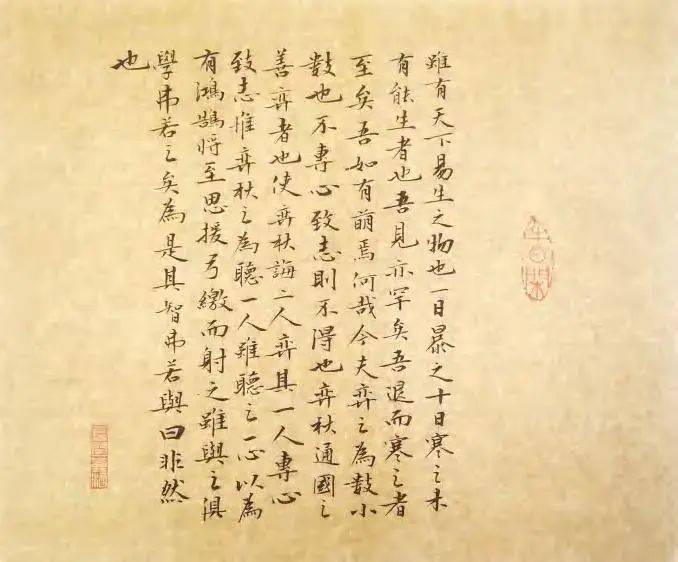 雖有天下易生之物也一日暴之十日寒之未
有能生者也吾見亦罕矣吾退而寒之者
至矣吾如有萌焉何哉今夫弈之為數小
數也不專心致志則不得也弈秋通國之
善弈者也使弈秋誨二人弈其一人專心
致志惟弈秋之為聽一人雖聽之一心以為
有鴻鵠將至思援弓繳而射之雖與之俱
學弗若之矣為是其智弗若與曰非然
也